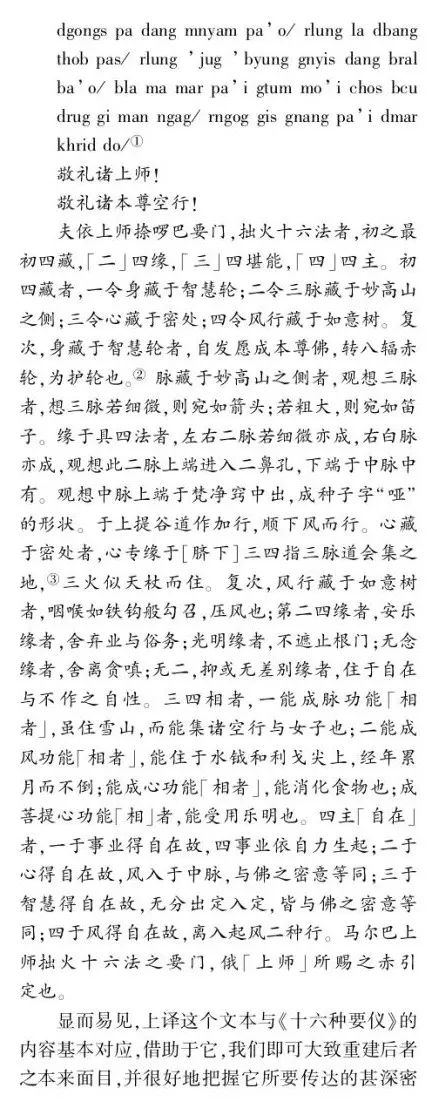 dgongs pa dang mnyam pa'o/ rlung la dbang
thob pas/ rlung 'jug 'byung gnyis dang bral
ba'o/ bla ma mar pa'i gtum mo'i chos bcu
drug gi man ngag/ rngog gis gnang pa'i dmar
khrid do/①
敬礼诸上师!
敬礼诸本尊空行!
夫依上师捺啰巴要门,拙火十六法者,初之最
初四藏,「二」四缘,「三」四堪能,「四」四主。初
四藏者,一令身藏于智慧轮;二令三脉藏于妙高山
之侧;三令心藏于密处;四令风行藏于如意树。复
次,身藏于智慧轮者,自发愿成本尊佛,转八辐赤
轮,为护轮也。② 脉藏于妙高山之侧者,观想三脉
者,想三脉若细微,则宛如箭头;若粗大,则宛如笛
子。缘于具四法者,左右二脉若细微亦成,右白脉
亦成,观想此二脉上端进入二鼻孔,下端于中脉中
有。观想中脉上端于梵净窍中出,成种子字“哑”
的形状。于上提谷道作加行,顺下风而行。心藏
于密处者,心专缘于[脐下]三四指三脉道会集之
地,③三火似天杖而住。复次,风行藏于如意树
者,咽喉如铁钩般勾召,压风也;第二四缘者,安乐
缘者,舍弃业与俗务;光明缘者,不遮止根门;无念
缘者,舍离贪嗔;无二,抑或无差别缘者,住于自在
与不作之自性。三四相者,一能成脉功能「相
者」,虽住雪山,而能集诸空行与女子也;二能成
风功能「相者」,能住于水钺和利戈尖上,经年累
月而不倒;能成心功能「相者」,能消化食物也;成
菩提心功能「相」者,能受用乐明也。四主「自在」
者,一于事业得自在故,四事业依自力生起;二于
心得自在故,风入于中脉,与佛之密意等同;三于
智慧得自在故,无分出定入定,皆与佛之密意等
同;四于风得自在故,离入起风二种行。马尔巴上
师拙火十六法之要门,俄「上师」所赐之赤引
定也。
显而易见,上译这个文本与《十六种要仪》的
内容基本对应,借助于它,我们即可大致重建后者
之本来面目,并很好地把握它所要传达的甚深密